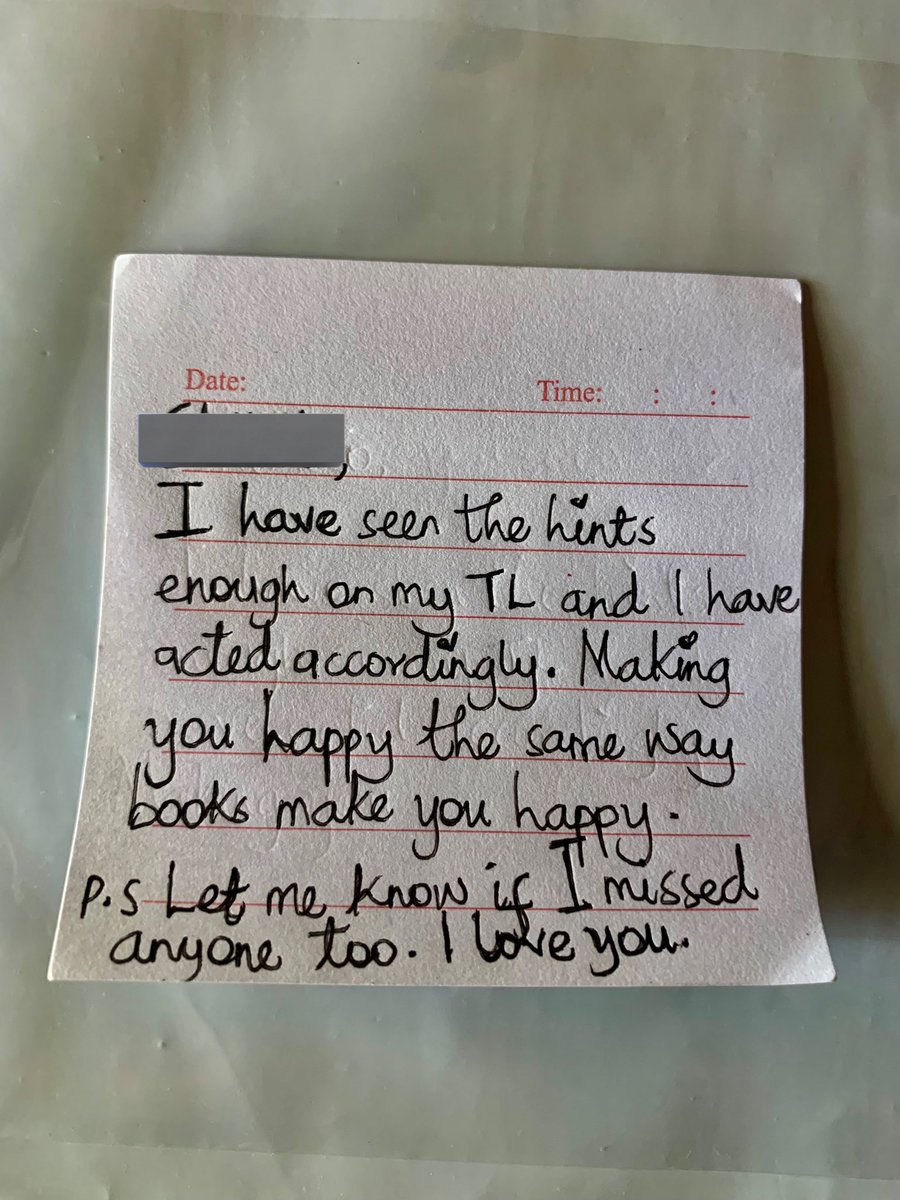 Date: Time: : :
,
I have seen the hints
enough on my TL and I have
acted accordingly. Making
you happy the same way
books make you happy.
P.S Let me know if I missed
anyone too. I love you.